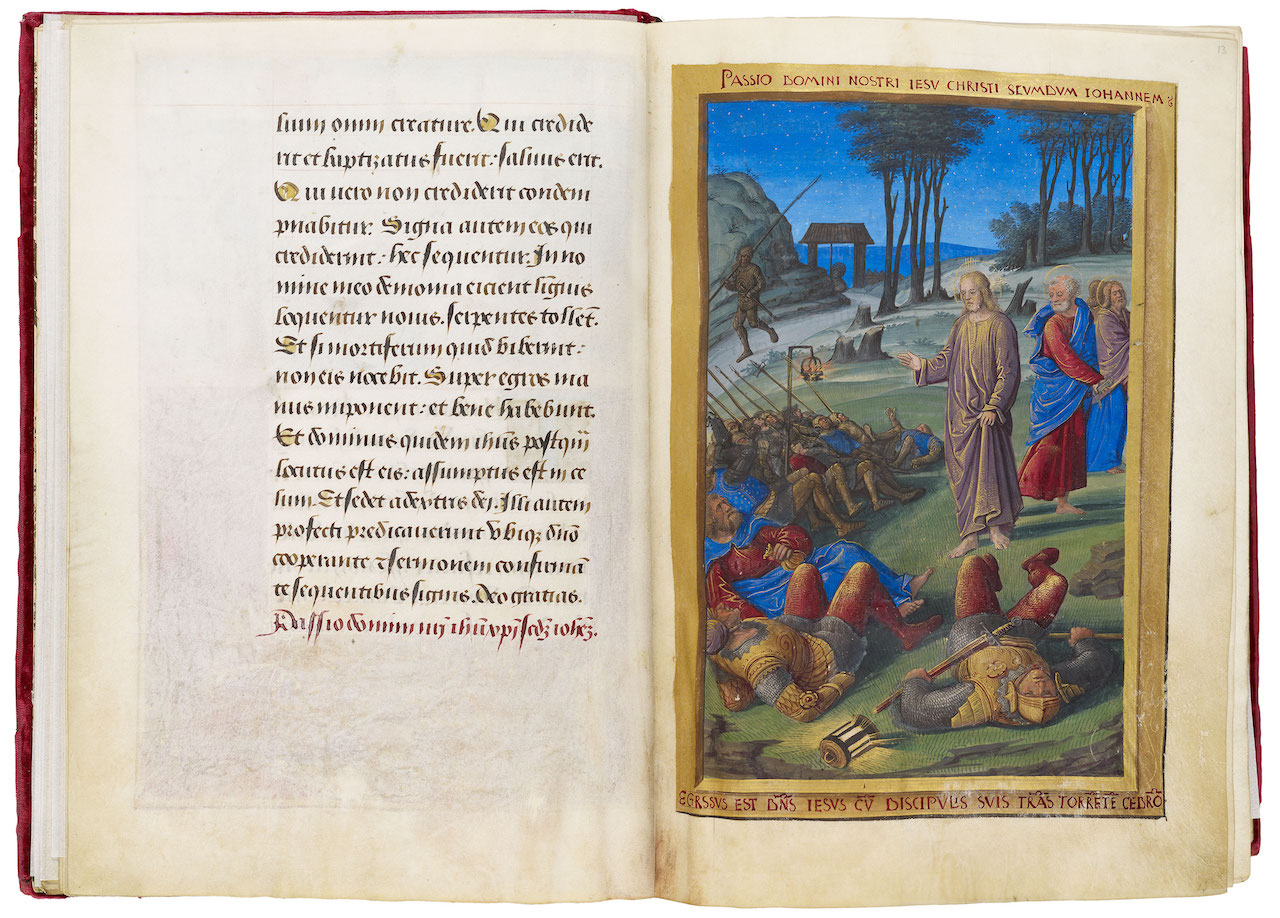 lium omni creature. Qui credide
rit et baptizatus fuerit: salvus erit.
Qui vero non crediderit condem
pnabitur: Signa autem eos qui
crediderint: hec sequentur. In no
mine meo demonia eicient linguis
loquentur novis. serpentes tollet̃.
Et si mortiferum quid biberint:
non eis nocebit. Super egros ma
nus imponent: et bene habebunt.
Et dominus quidem ihũs postqũ
locutus est eis: assumptus est in ce
lum. Et sedet a dextris dei. Illi autem
profecti predicaverunt ubiqȝ dño
cooperante et sermonem confirmã
te sequentibus signis. Deo gratias.
Passio domini nr̃i ihũ xp̃i scdȝ iohẽȝ.
13
PASSIO DOMINI NOSTRI IESU CHRISTI SEUMDUM IOHANNEM
EGRSSVS EST DÑS IESUS CŨ DISCIPULIS SUIS TRÃS TORRẼTẼ CEDRÕ